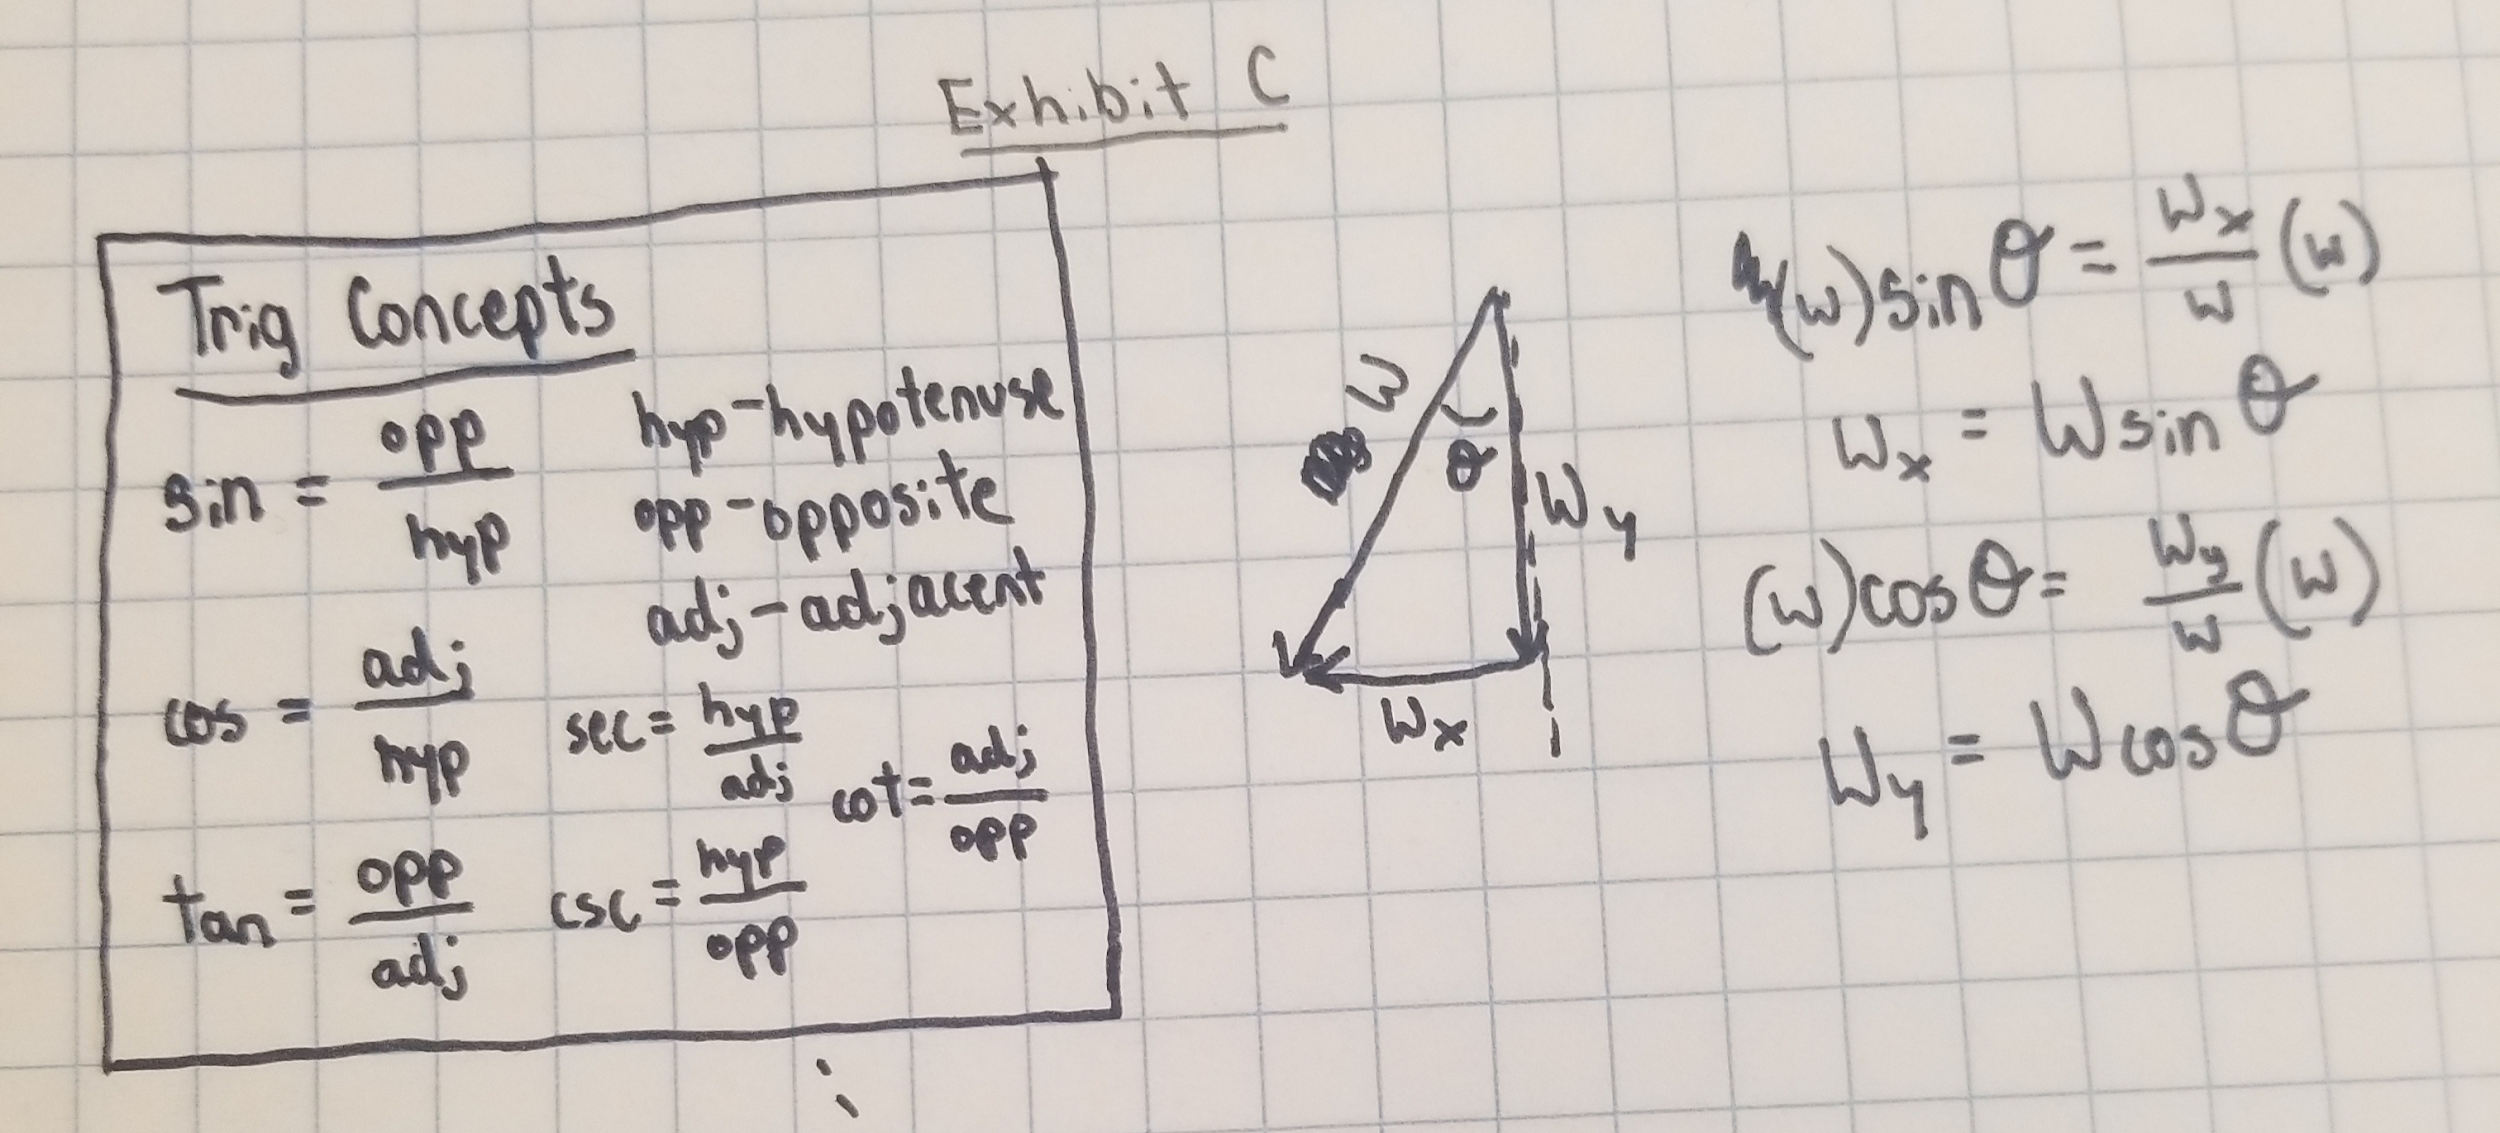 Exhibit C
Trig Concepts
sin = opp/hyp
hyp-hypotenuse
opp-opposite
adj-adjacent
cos = adj/hyp
sec = hyp/adj
cot = adj/opp
tan = opp/adj
csc = hyp/opp
W
θ
Wy
Wx
(W)sin θ = Wx/W (W)
Wx = W sin θ
(W)cos θ = Wy/W (W)
Wy = W cos θ